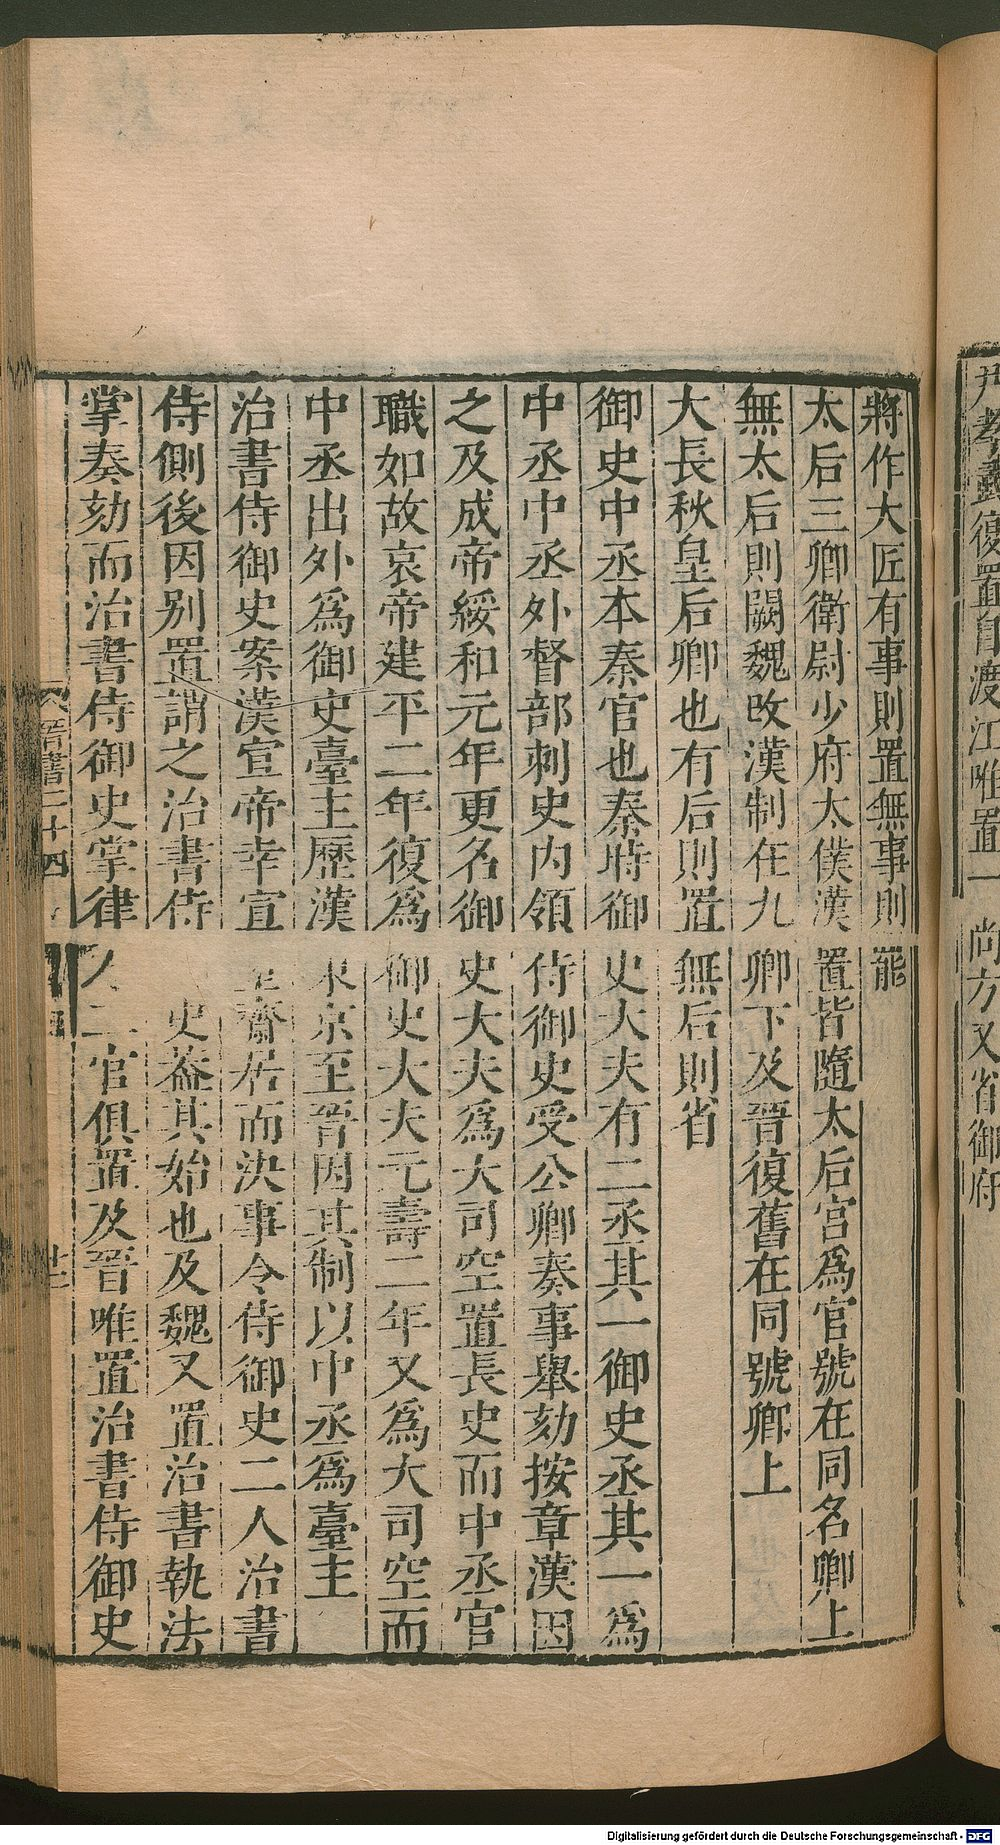 尹孝武復置自渡江唯置一尚方又省御府
將作大匠有事則置無事則罷
太后三卿衛尉少府太僕漢置皆隨太后宮爲官號在同名卿上
無太后則闕魏改漢制在九卿下及晉復舊在同號卿上
大長秋皇后卿也有后則置無后則省
御史中丞本秦官也秦時御史大夫有二丞其一御史丞其一爲
中丞中丞外督部刺史內領侍御史受公卿奏事舉劾按章漢因
之及成帝綏和元年更名御史大夫爲大司空置長史而中丞官
職如故哀帝建平二年復爲御史大夫元壽二年又爲大司空而
中丞出外爲御史臺主歷漢東京至晉因其制以中丞爲臺主
治書侍御史案漢宣帝幸宣室齋居而決事令侍御史二人治書
侍側後因別置謂之治書侍史蓋其始也及魏又置治書執法
掌奏劾而治書侍御史掌律 二官俱置及晉唯置治書侍御史
晉書二十四 廿一
Digitalisierung gefördert durch die Deutsche Forschungsgemeinschaft - DFG